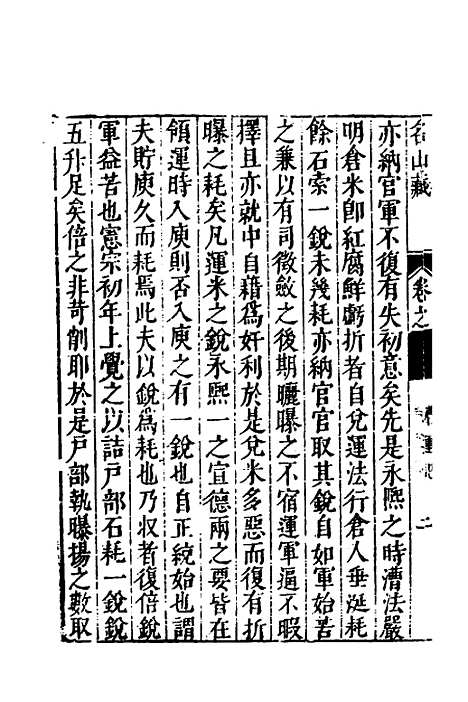 名山藏
卷之
二
亦納官軍不復有失初意矣先是永熙之時漕法嚴
明倉米卽紅腐鮮虧折者自兌運法行倉人垂涎耗
餘石索一銳未幾耗亦納官官取其銳自如軍始苦
之兼以有司徵斂之後期曬曝之不宿運軍逼不暇
擇且亦就中自藉爲奸利於是兌米多惡而復有折
曝之耗矣凡運米之銳永熙一之宣德兩之要皆在
領運時入庾則否入庾之有一銳也自正統始也謂
夫貯庾久而耗焉此夫以銳爲耗也乃収者復倍銳
軍益苦也憲宗初年上覺之以詰戶部石耗一銳銳
五升足矣倍之非苛削耶於是戶部執曝揚之數取